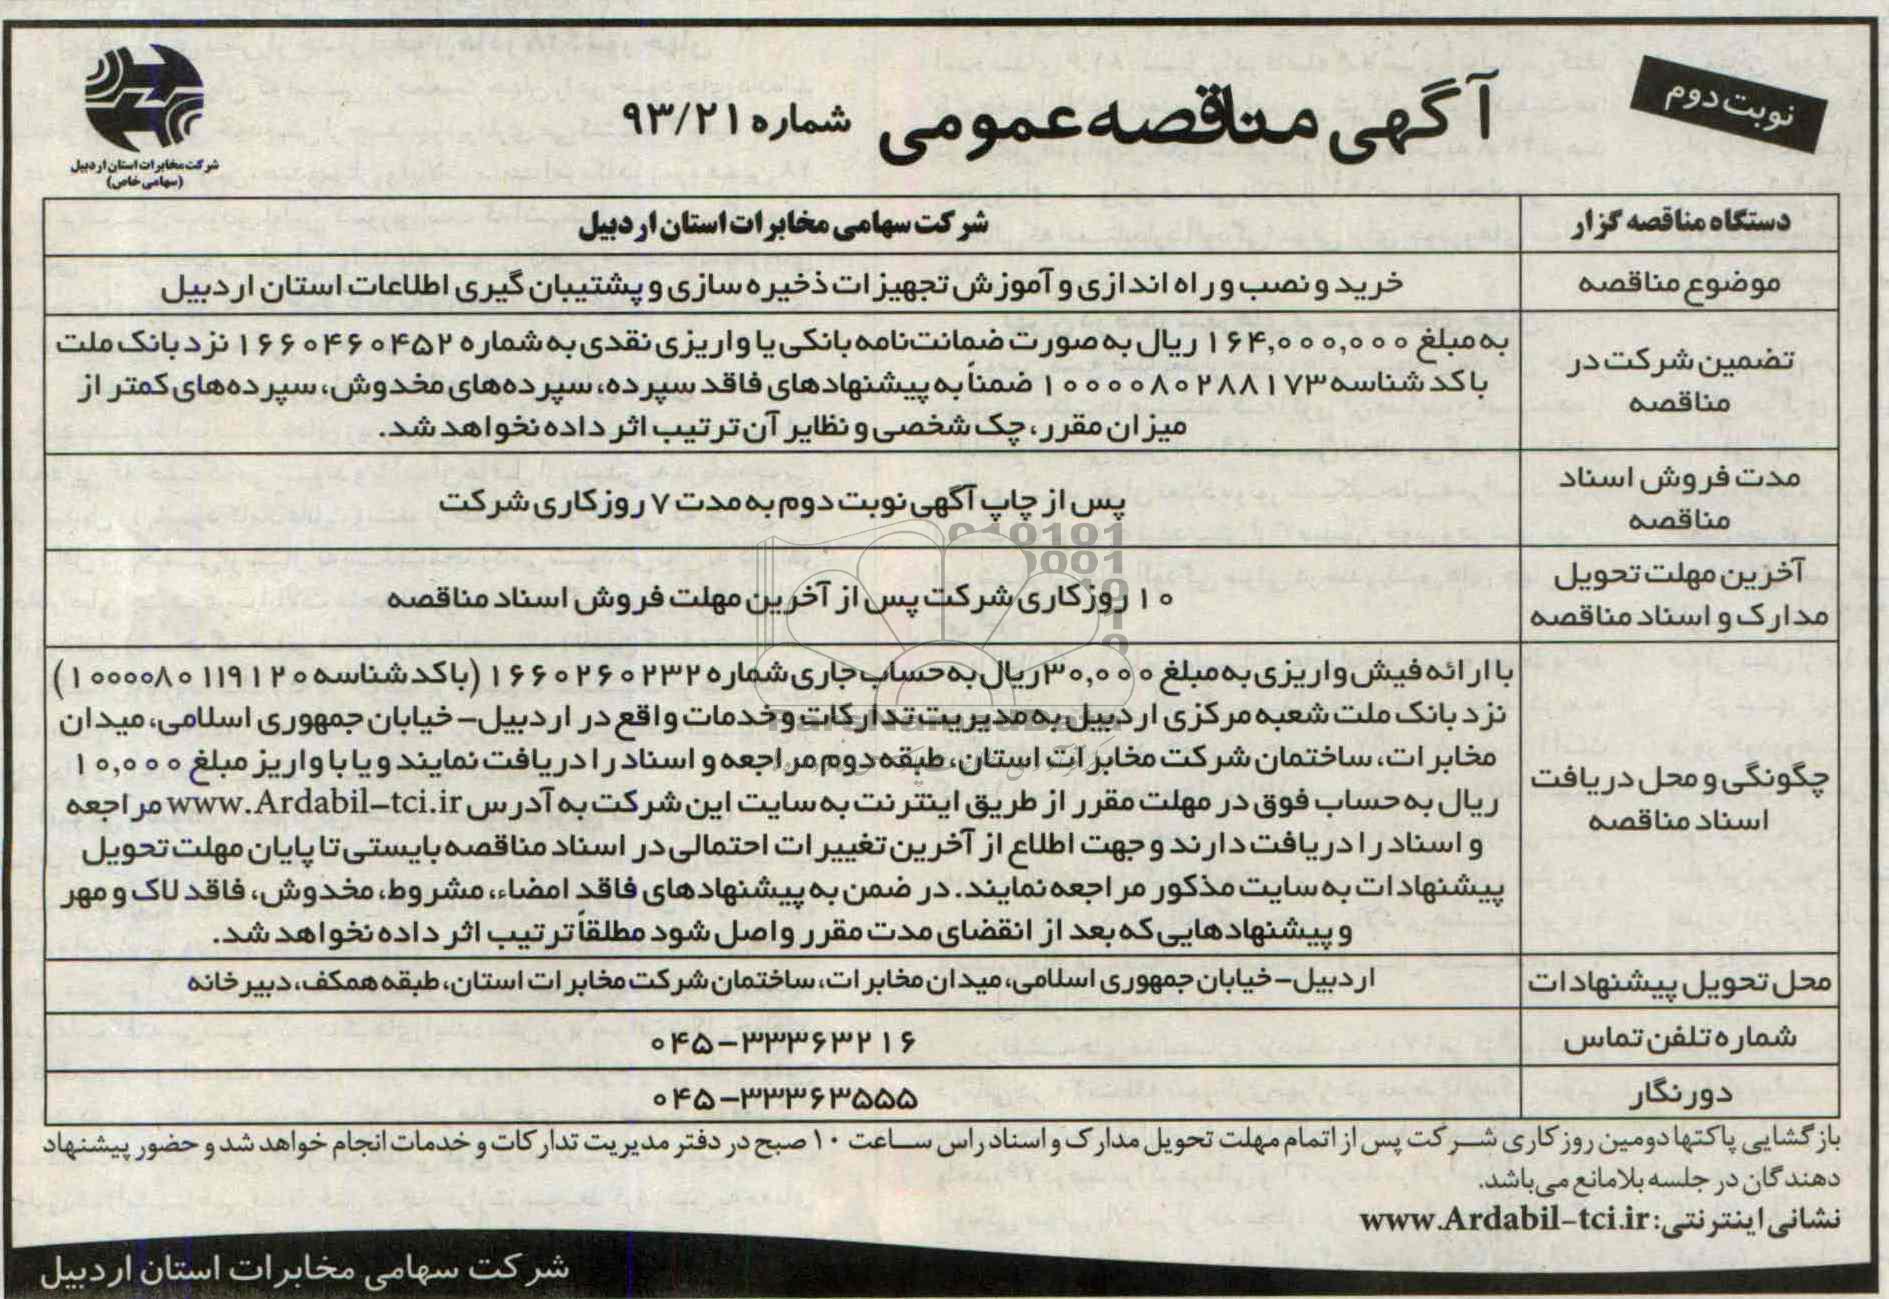 نوبت دوم
آگهی مناقصه عمومی شماره ۹۳/۲۱
شرکت مخابرات استان اردبیل
(سهامی خاص)
دستگاه مناقصه گزار
شرکت سهامی مخابرات استان اردبیل
موضوع مناقصه
خرید و نصب و راه اندازی و آموزش تجهیزات ذخیره سازی و پشتیبان گیری اطلاعات استان اردبیل
تضمین شرکت در
مناقصه
به مبلغ ۱۶۴,۰۰۰,۰۰۰ ریال به صورت ضمانت‌نامه بانکی یا واریزی نقدی به شماره ۱۶۶۰۴۶۰۴۵۲ نزد بانک ملت
با کد شناسه ۱۰۰۰۰۸۰۲۸۸۱۷۳ ضمناً به پیشنهادهای فاقد سپرده، سپرده‌های مخدوش، سپرده‌های کمتر از
میزان مقرر، چک شخصی و نظایر آن ترتیب اثر داده نخواهد شد.
مدت فروش اسناد
مناقصه
پس از چاپ آگهی نوبت دوم به مدت ۷ روز کاری شرکت
آخرین مهلت تحویل
مدارک و اسناد مناقصه
۱۰ روز کاری شرکت پس از آخرین مهلت فروش اسناد مناقصه
چگونگی و محل دریافت
اسناد مناقصه
با ارائه فیش واریزی به مبلغ ۳۰,۰۰۰ ریال به حساب جاری شماره ۱۶۶۰۲۶۰۲۳۲ (با کد شناسه ۱۰۰۰۰۸۰۱۱۹۱۲۰)
نزد بانک ملت شعبه مرکزی اردبیل به مدیریت تدارکات و خدمات واقع در اردبیل- خیابان جمهوری اسلامی، میدان
مخابرات، ساختمان شرکت مخابرات استان، طبقه دوم مراجعه و اسناد را دریافت نمایند و یا با واریز مبلغ ۱۰,۰۰۰
ریال به حساب فوق در مهلت مقرر از طریق اینترنت به سایت این شرکت به آدرس www.Ardabil-tci.ir مراجعه
و اسناد را دریافت دارند و جهت اطلاع از آخرین تغییرات احتمالی در اسناد مناقصه بایستی تا پایان مهلت تحویل
پیشنهادات به سایت مذکور مراجعه نمایند. در ضمن به پیشنهادهای فاقد امضاء، مشروط، مخدوش، فاقد لاک و مهر
و پیشنهادهایی که بعد از انقضای مدت مقرر واصل شود مطلقاً ترتیب اثر داده نخواهد شد.
محل تحویل پیشنهادات
اردبیل- خیابان جمهوری اسلامی، میدان مخابرات، ساختمان شرکت مخابرات استان، طبقه همکف، دبیرخانه
شماره تلفن تماس
۰۴۵-۳۳۳۶۳۲۱۶
دورنگار
۰۴۵-۳۳۳۶۳۵۵۵
بازگشایی پاکتها دومین روز کاری شرکت پس از اتمام مهلت تحویل مدارک و اسناد راس ساعت ۱۰ صبح در دفتر مدیریت تدارکات و خدمات انجام خواهد شد و حضور پیشنهاد
دهندگان در جلسه بلامانع می‌باشد.
نشانی اینترنتی: www.Ardabil-tci.ir
شرکت سهامی مخابرات استان اردبیل